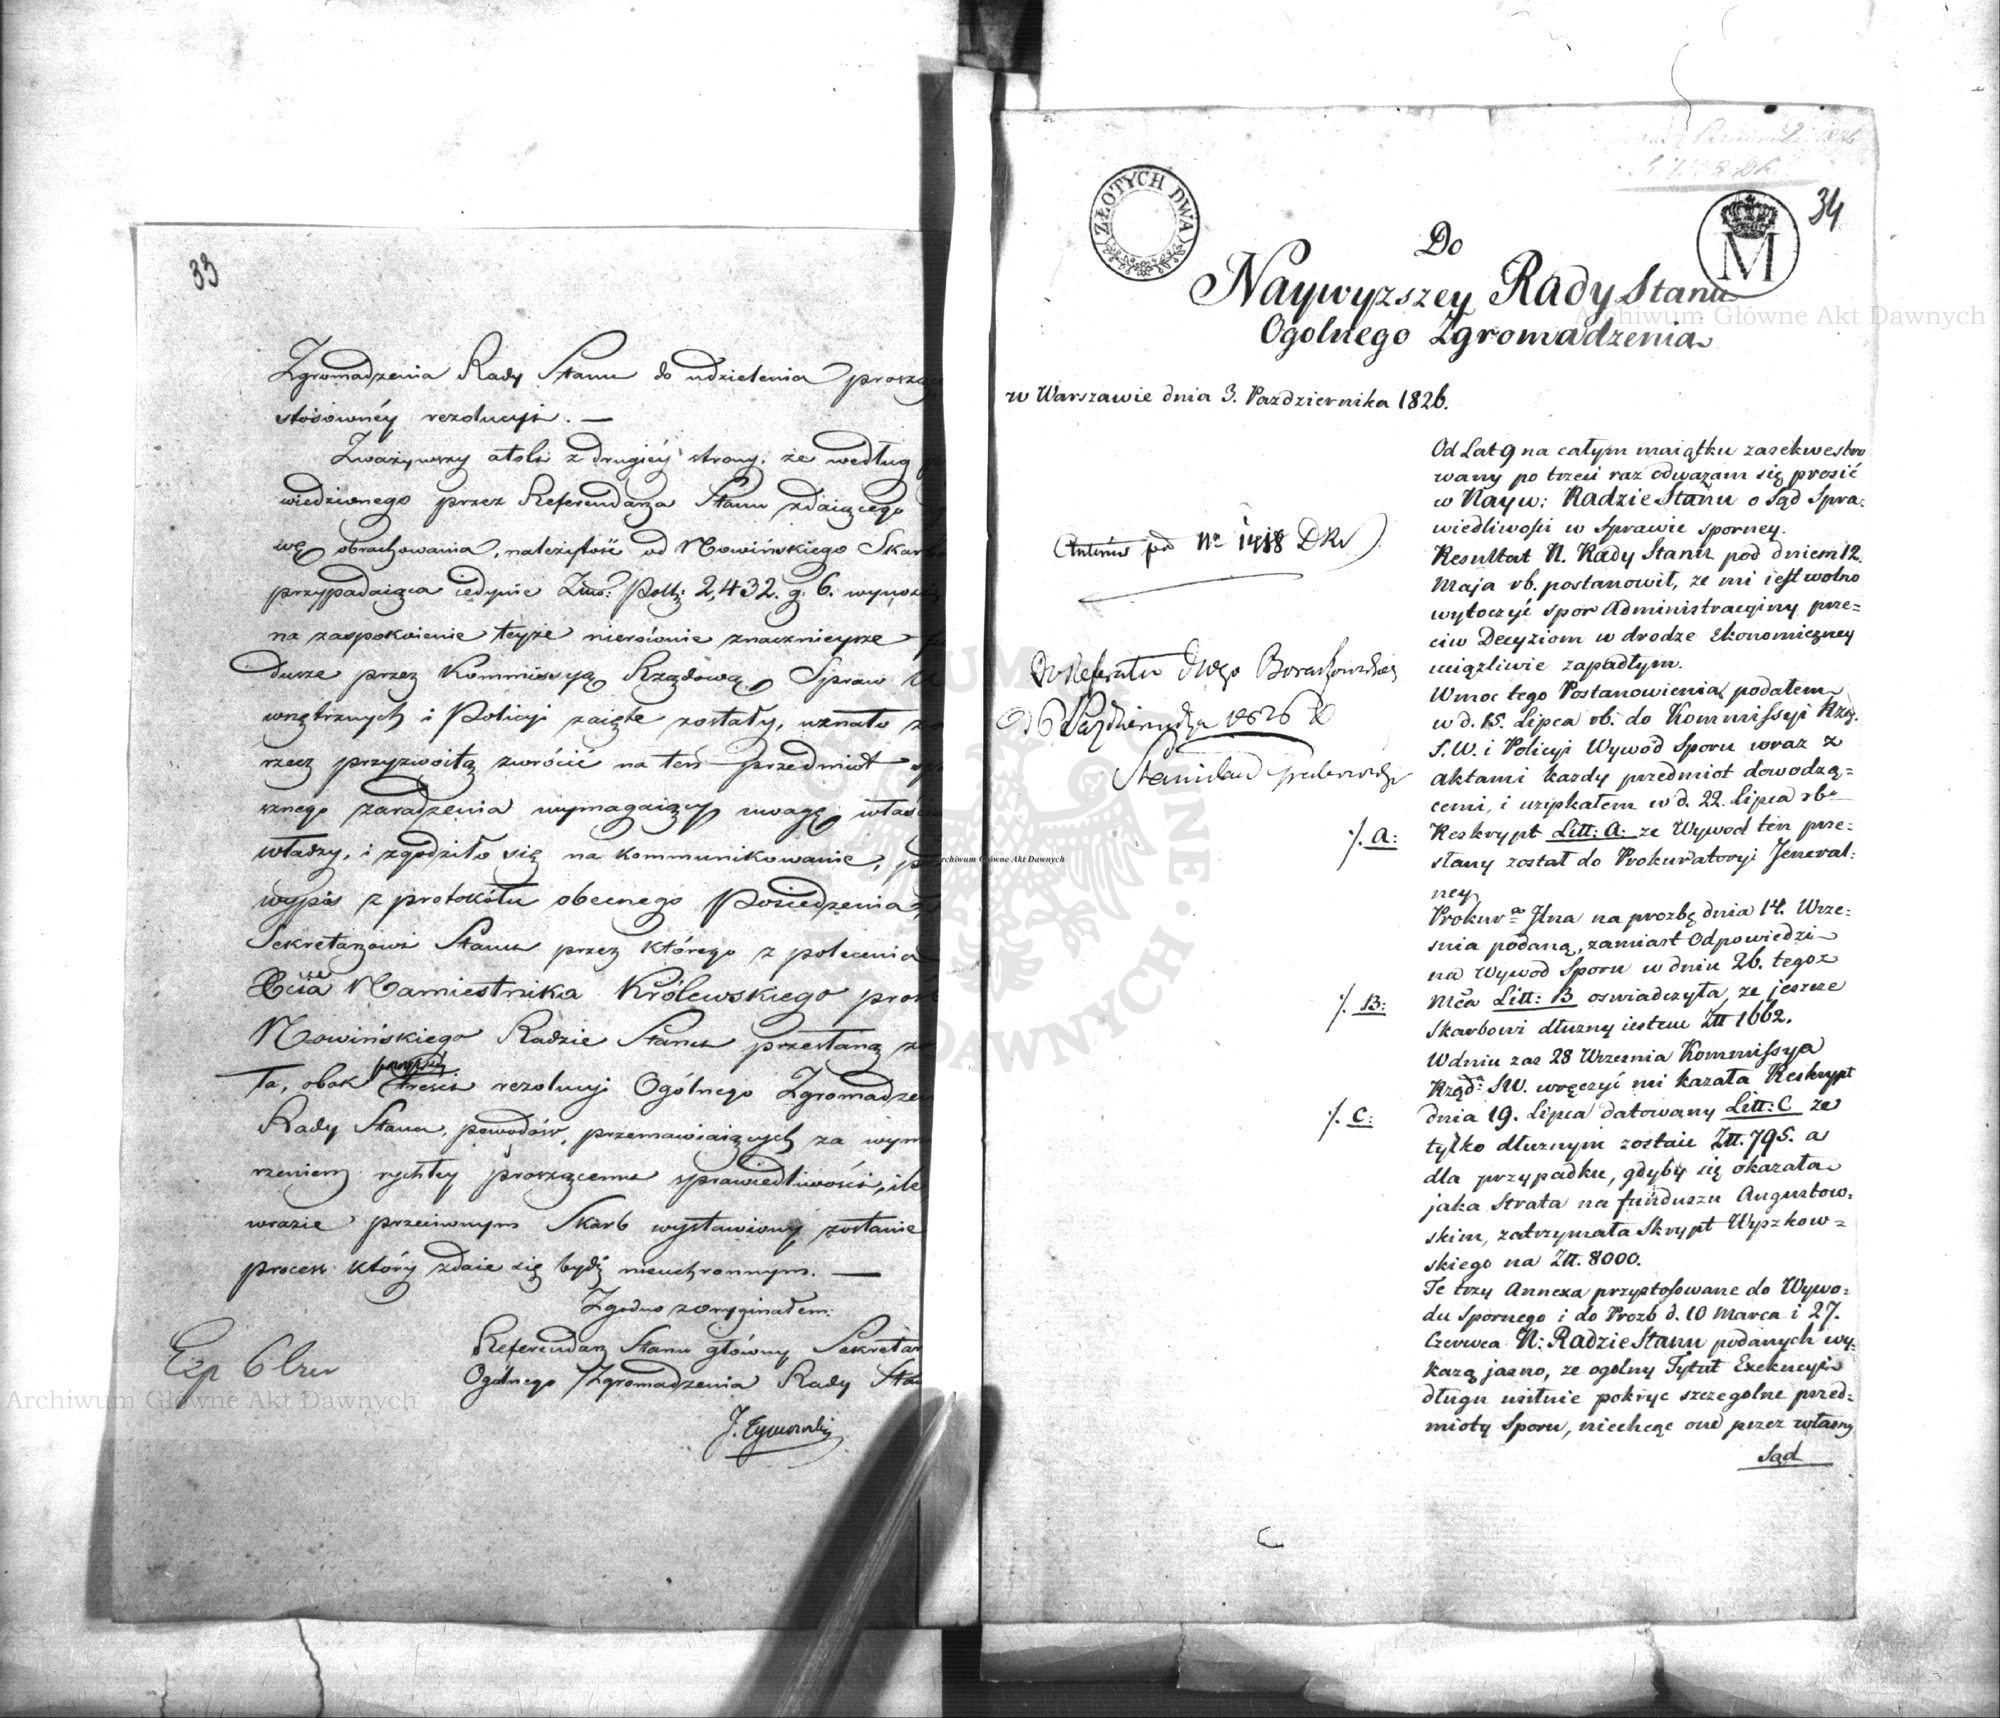 33
Zgromadzenia Rady Stanu do udzielenia proszące
stósownéy rezolucyi. —
Zważywszy atoli z drugiéy strony, że według
wiedzionego przez Referendarza Stanu zdaiącego
wę obrachowania, należytość od Nowińskiego Skarb
przypadaiąca iedynie Złło: Pollz: 2,432. g. 6. wynosi,
na zaspokoienie teyże nierównie znacznieysze fu
dusze przez Kommissyą Rządową Spraw We
wnętrznych i Policyi zaięte zostały, uznało za
rzecz przyzwoitą zwrócić na ten przedmiot
sznego zaradzenia wymagaiący uwagę właściw
władzy, i zgodziło się na kommunikowanie, p
wypis z protokółu obecnego Posiedzenia,
Sekretarzowi Stanu przez którego z polecenia
Xcia Namiestnika Królewskiego proś
Nowińskiego Radzie Stanu przesłaną zo
ła, obok treści rezolucyi Ogólnego Zgromadzen
Rady Stanu, powodów, przemawiaiących za wym
rzeniem rychłey proszącemu sprawiedliwości, ile
wrazie przeciwnym Skarb wystawiony zostanie
proces który zdaie się bydź nieuchronnym. —
Zgodno z oryginałem:
Referendarz Stanu główny Sekretar
Ogólnego Zgromadzenia Rady Sta
J. Tymowski
Exp 6
34
ZŁOTYCH DWA
M
Do
Naywyzszey Rady Stanu
Ogolnego Zgromadzenia
w Warszawie dnia 3. Pazdziernika 1826.
Od Lat 9 na całym maiątku zasekwestro
wany po trzeci raz odwazam się prosić
w Nayw: Radzie Stanu o Sąd Spra-
wiedliwości w Sprawie sporney.
Resultat N. Rady Stanu pod dniem 12.
Maja rb. postanowił, ze mi iest wolno
wytoczyć spor Administracyiny prze-
ciw Decyziom w drodze Ekonomiczney
uciązliwie zapadłym.
W moc tego Postanowienia podałem
w d. 15. Lipca rb. do Kommissyi Rzą.
S.W. i Policyi Wywod Sporu wraz z
aktami kazdy przedmiot dowodzą-
cemi, i uzyskałem w d. 22. Lipca rb.
./. A: Reskrypt Litt: A: ze Wywod ten prze-
słany został do Prokuratoryi Jeneral-
ney
Prokur Jlna na prozbę dnia 14. Wrze-
snia podaną, zamiast Odpowiedzi
na Wywod Sporu w dniu 26. tegoz
./. B: Mca Litt: B oswiadczyła, ze jeszcze
Skarbowi dłuzny iestem Złł 1662.
W dniu zas 28 Wrzesnia Kommissya
Rząd. SW. wręczyć mi kazała Reskrypt
./. C: dnia 19. Lipca datowany Litt: C ze
tylko dłuznym zostaie Złł. 795. a
dla przypadku, gdyby się okazała
jaka Strata na funduszu Augustow-
skim, zatrzymała Skrypt Wyszkow-
skiego na Złł. 8000.
Te trzy Annexa przystosowane do Wywo-
du Spornego i do Prozb d. 10 Marca i 27.
Czerwca N: Radzie Stanu podanych wy-
kazą jasno, ze ogolny Tytuł Exekucyi
długu usilnie pokryc szczegolne przed-
mioty Sporu, niechcąc one przez własny
Sąd
Nº 1418 DRs
Do Referatu
d 6 Pazdziernika 1826
Stanisław
Archiwum Główne Akt Dawnych
Archiwum Główne Akt Dawnych
Archiwum Główne Akt Dawnych